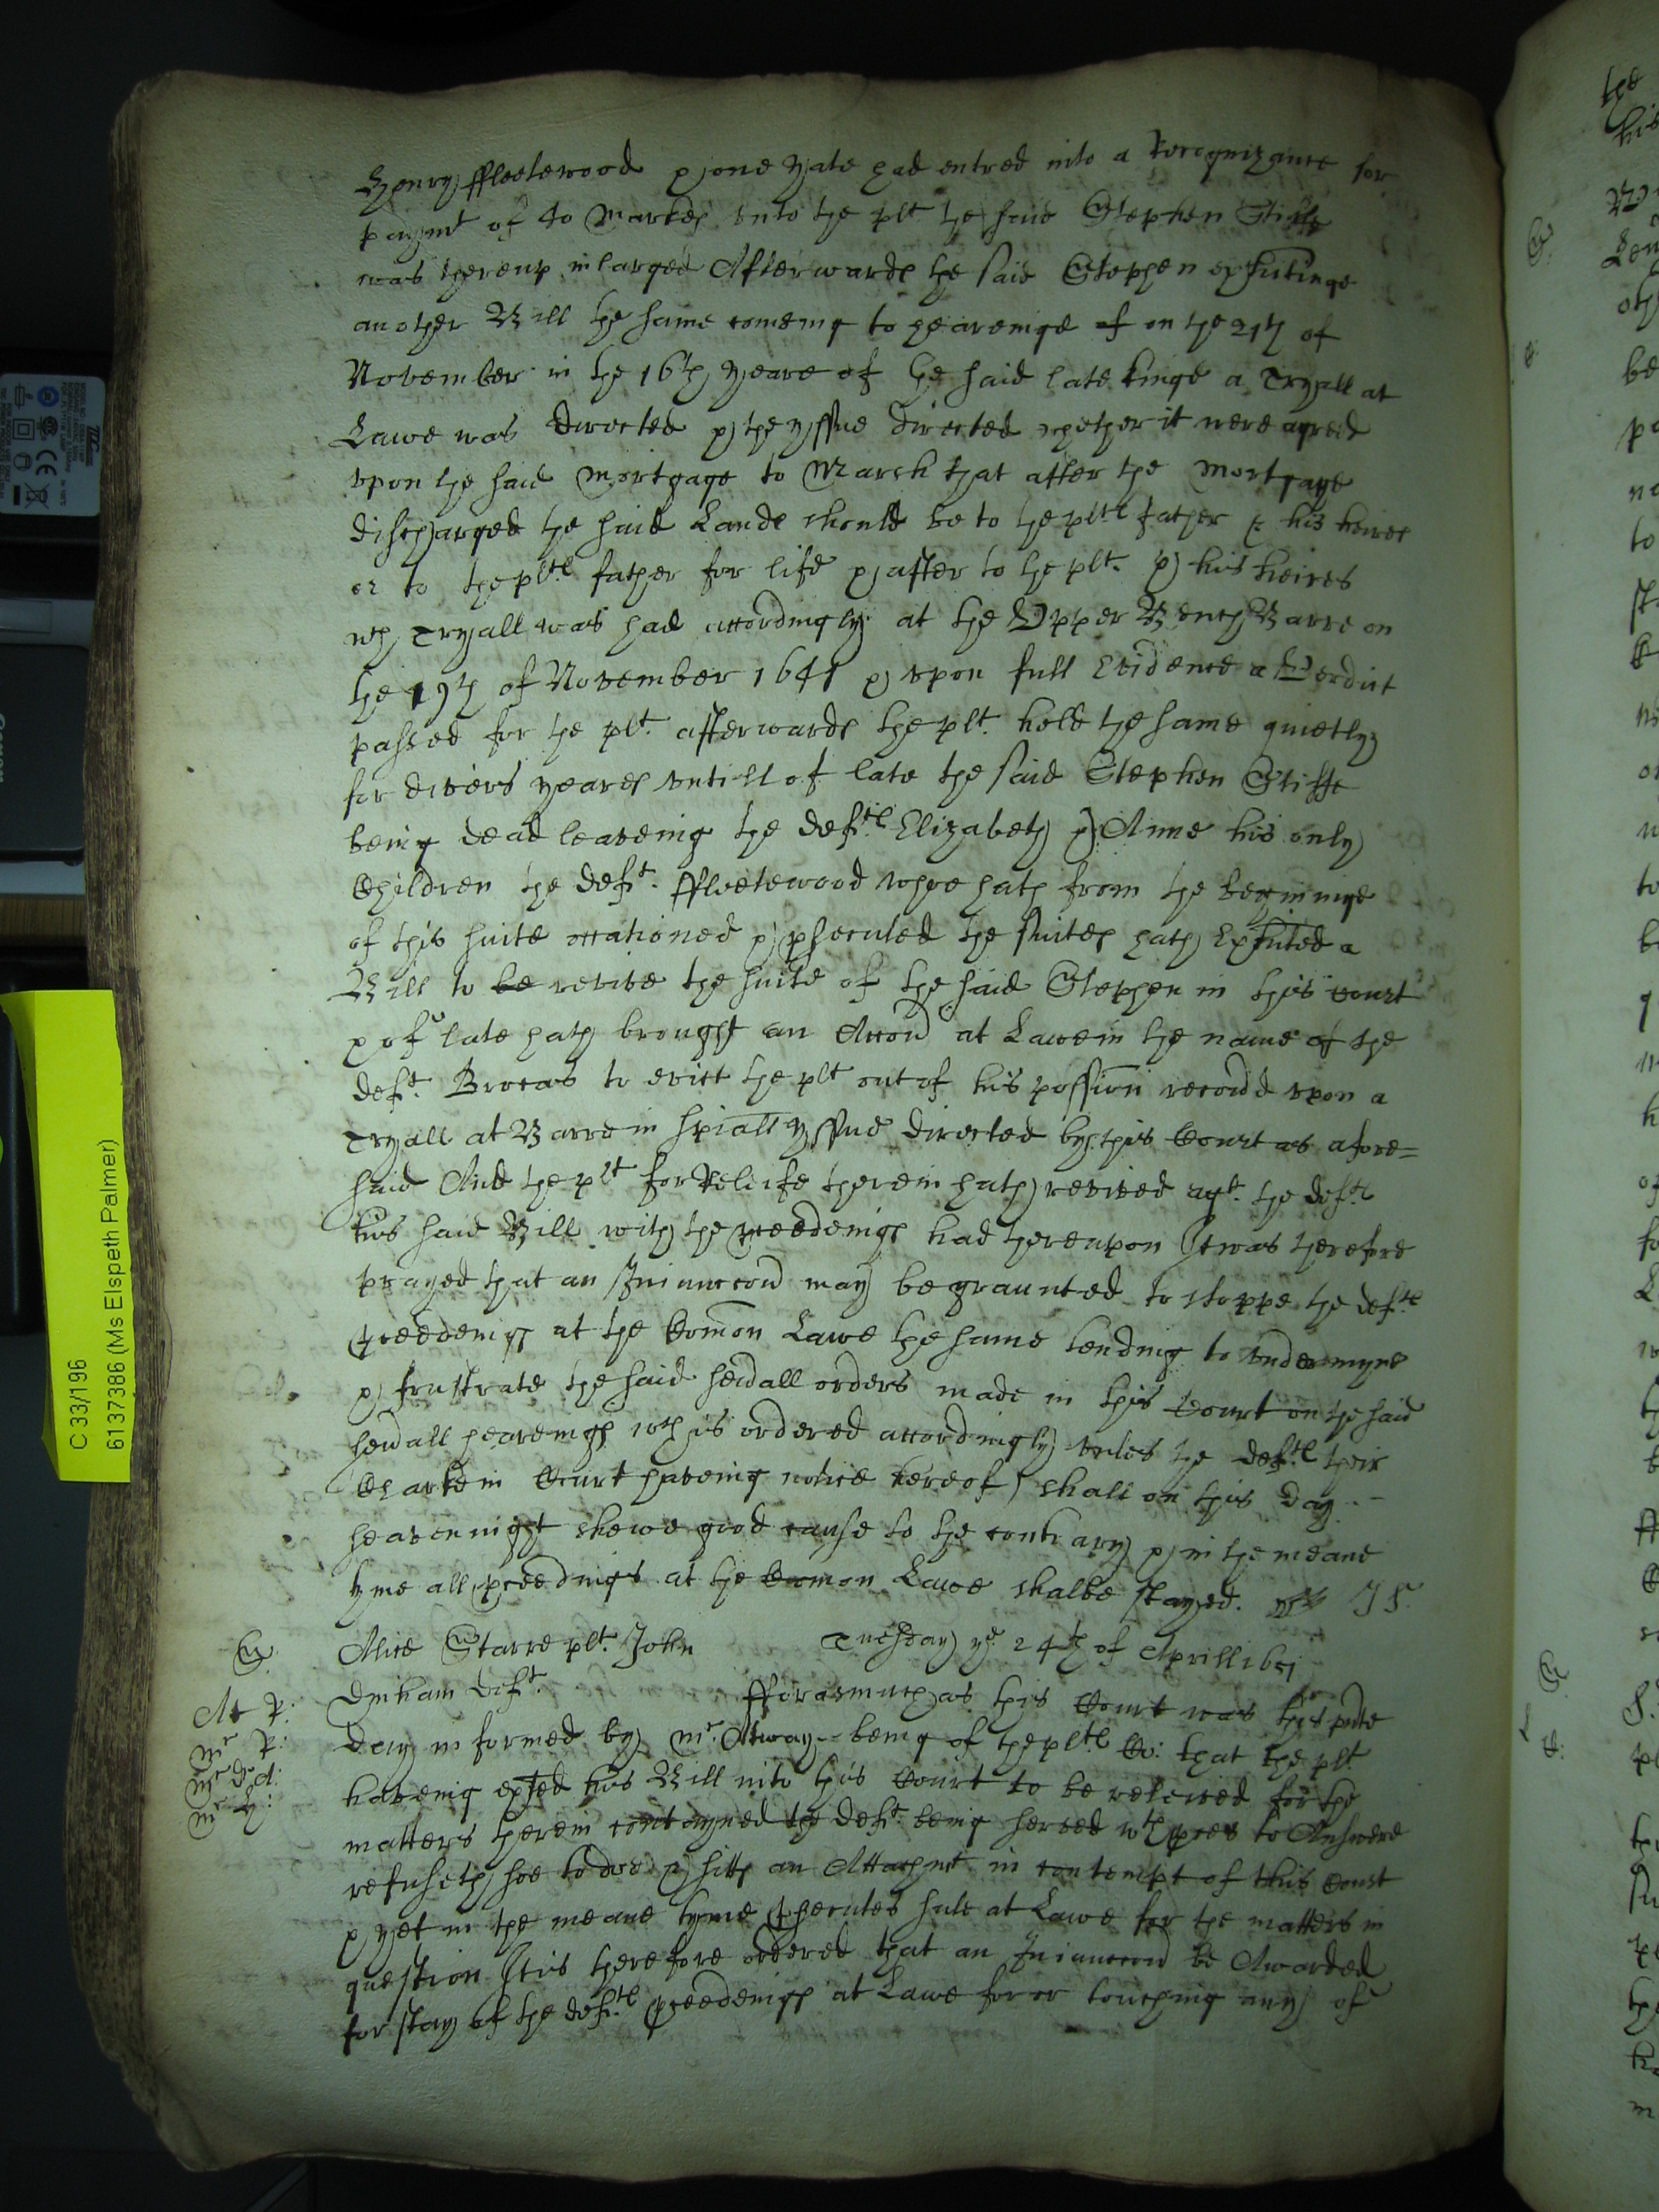 Henry Ffleetewood & one Yate had entred into a Recognizance for
paymt of 40 Markes unto the plt the said Stephen Stiffe
was thereup inlarged Afterwards the said Stephen exhitinge
another Bill the same comeing to heareinge of on the 21th of
November in the 16th yeare of the said late kinge a Tryall at
Lawe was directed & the yssue directed whether it were agreed
upon the said Mortgage to Marsh that after the Mortgage
discharged the said Lands should be to the plts father & his heires
or to the plts father for life & after to the plt. & his heires
wch Tryall was had accordingly at the Upper Bench Barre on
the 19th of November 1641 & upon full Evidence a Verdict
passed for the plt. afterwards the plt. held the same quietly
for divers yeares untill of late the said Stephen Stiffe
being dead leaveing the defts Elizabeth & Anne his only
Children the deft. Ffleetewood whoe hath from the beginninge
of this suite occationed & psecuted the suites hath Exhited a
Bill to be revive the suite of the said Stephen in this Court
& of late hath brought an Accon at Lawe in the name of the
deft. Brocas to evict the plt out of his possion recovd upon a
Tryall at Barre in spiall yssue directed by this Court as afore=
said And the plt for Releife therein hath revived agt. the defts
his said Bill with the pceedeings had thereupon It was therefore
prayed that an Iniunccon may be graunted to stoppe the defts
pceedeings at the Comon Lawe the same tending to undermyne
& frustrate the said sevall orders made in this Court on the said
sevall heareings wch is ordered accordingly unles the defts their
Clarke in Court haveing notice hereof) shall on this day
seavennight shewe good cause to the contrary & in the meane
tyme all pceedings at the Comon Lawe shalbe stayed. JS
Alice Starre plt. John
Dinham deft.
Tuesday ye 24th of Aprill 1651
At R:
Mr R:
Mr De
A:
Mr H:
Fforasmuch as this Court was this pnte
day informed by Mr. Atway being of the plts Co: that the plt
haveing exhed his Bill into this Court to be releived for the
matters therein contayned the deft. being served wth pces to Answere
refuseth soe to doe & sitts an Attachmt in contempt of this Court
& yet in the meane tyme psecutes suit at Lawe for the matters in
question It is therefore ordered that an Iniunccon be Awarded
for stay of the defts pceedeings at Lawe for or touching any of
C 33/196
6137386 (Ms Elspeth Palmer)